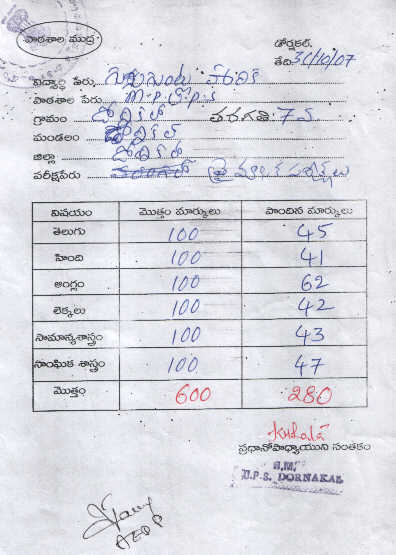 పాఠశాల ముద్ర
డోర్నకల్.
తేది: 31/10/07
విద్యార్థి పేరు
పాఠశాల పేరు M.P.U.P.S
గ్రామం డోర్నకల్ తరగతి: 7వ
మండలం డోర్నకల్
జిల్లా
పరీక్షపేరు త్రైమాసిక పరీక్షలు
విషయం మొత్తం మార్కులు పొందిన మార్కులు
తెలుగు 100 45
హింది 100 41
ఆంగ్లం 100 62
లెక్కలు 100 42
సామాన్యశాస్త్రం 100 43
సాంఘిక శాస్త్రం 100 47
మొత్తం 600 280
ప్రధానోపాధ్యాయుని సంతకం
H.M.
U.P.S. DORNAKAL